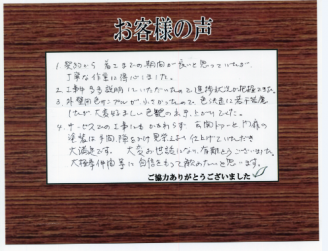 お客様の声
1. 契約から着工までの期間が長いと思っていたが、
丁寧な作業に感心しました。
2. 工事中も説明していただいたので進捗状況が把握できた。
3. 外壁の色のサンプルが小さかったので色決定に若干
したが大変好ましい色調の仕上りでした。
4. サービスでの工事にもかかわらず玄関ドアーと門扉の
塗装は手間暇をかけ見事な仕上げていただき
大満足です。大変お世話になり有難とうございました。
自信をもって歓めたいと思います。
ご協力ありがとうございました